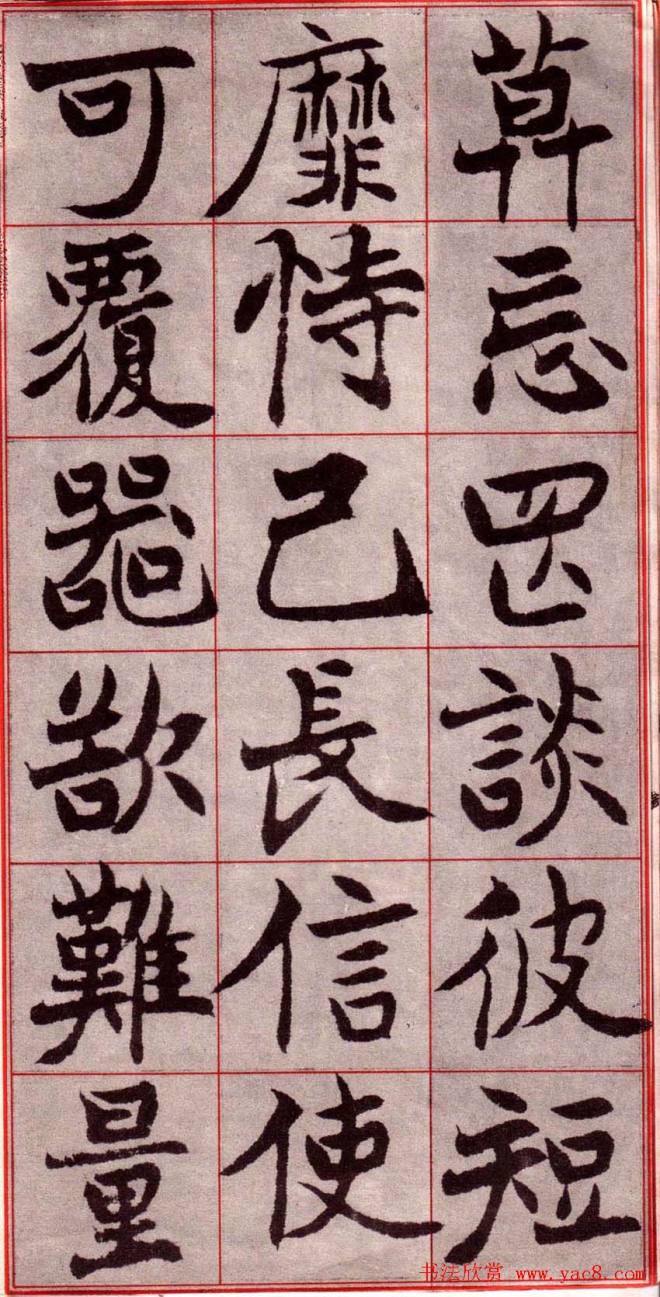 莫忘罔談彼短
靡恃己長信使
可覆器欲難量
书法欣赏 www.yac8.com